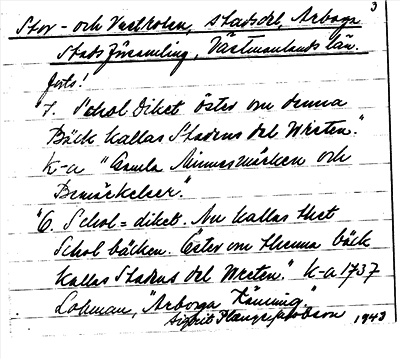 3
Stor- och Vestholen, stadsdel, Arboga
Stadsförsamling, Västmanlands län.
forts!
7. Schol Diket öster om denna
Bäck kallas Stadens del Westen."
k-a "Gamla Minnesmärken och
Bemärkelser."
"6. Schol=diket. Nu kallas thet
Schol bäcken. Öster om thenna bäck
kallas Stadens del Westen." k-a 1737
Lohman, "Arboga Känning."
Sigbrit Plænge Jacobson 1943